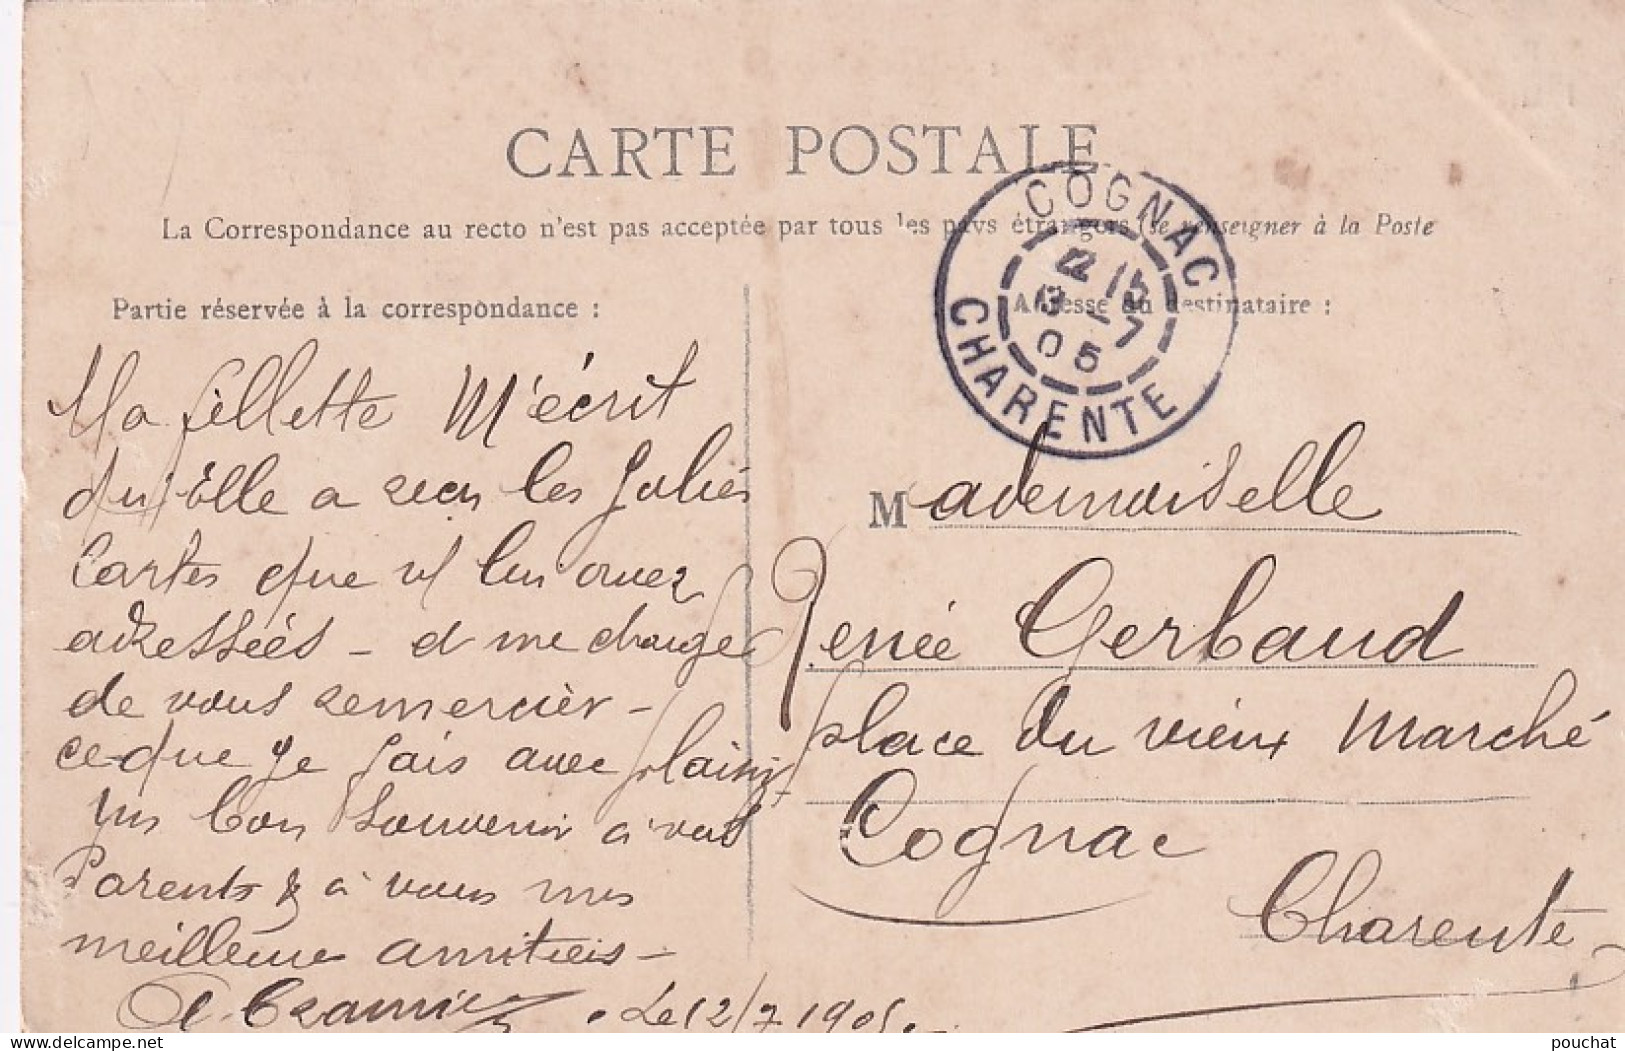 CARTE POSTALE
La Correspondance au recto n'est pas acceptée par tous les pays étrangers (se renseigner à la Poste
COGNAC
CHARENTE
-7
05
Partie réservée à la correspondance :
Adresse du destinataire :
Ma fillette M'écrit
qu'Elle a recu les Jolies
Cartes que vs lui avez
adresséés - et me charge
de vous remercier -
ce que je fais avec plaisir
un bon Souvenir à vos
Parents & à vous mes
meilleures amitiés -
Le 12/7 1905.
Mademoiselle
Renée Gerbaud
place du vieux Marché
Cognac
Charente
pouchat